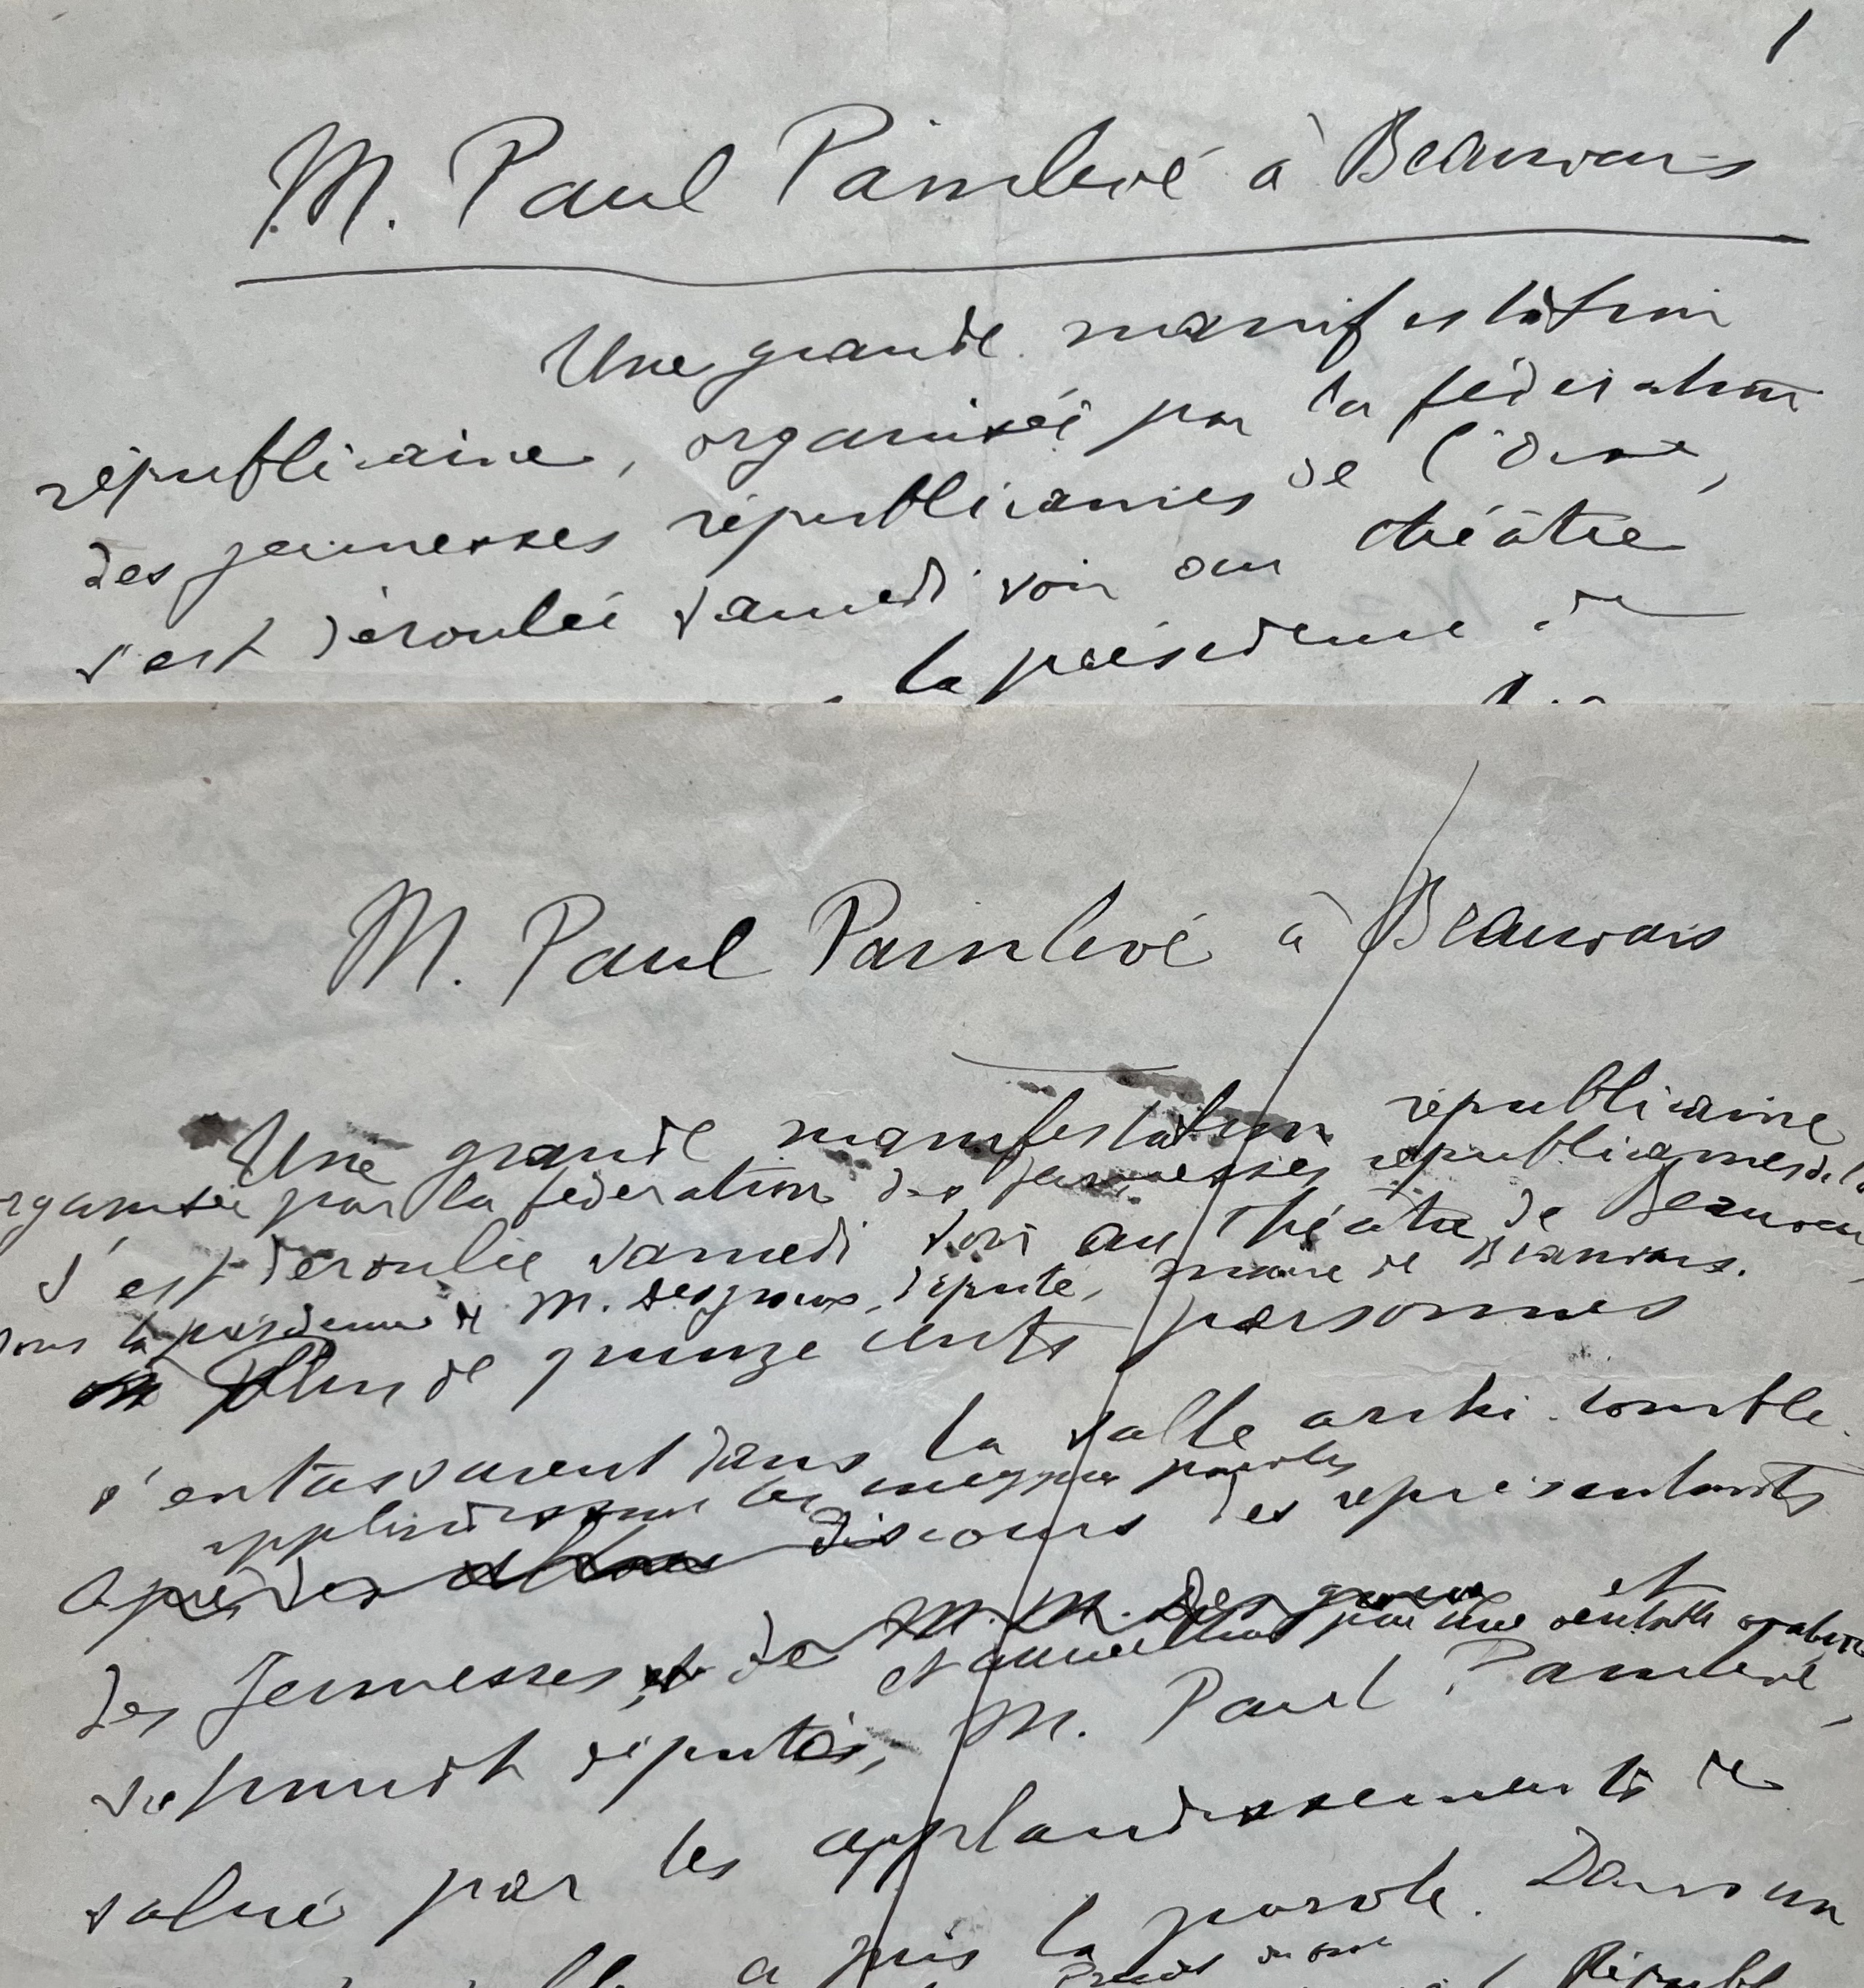 1
M. Paul Painlevé à Beauvais
Une grande manifestation
républicaine, organisée par la fédération
des jeunesses républicaines de l'Oise,
s'est déroulée samedi soir au théâtre
la présidence de
M. Paul Painlevé à Beauvais
Une grande manifestation républicaine
organisée par la fédération des Jeunesses républicaines de l'
s'est déroulée samedi soir au Théâtre de Beauvais
sous la présidence de M. Desgroux, député, maire de Beauvais.
Plus de quinze cents personnes
s'entassaient dans la salle archi-comble.
applaudissant les
Après des discours des représentants
des Jeunesses, et de M. M. Desgroux et
et par une véritable
députés, M. Paul Painlevé,
salué par les applaudissements de
a pris la parole. Dans un